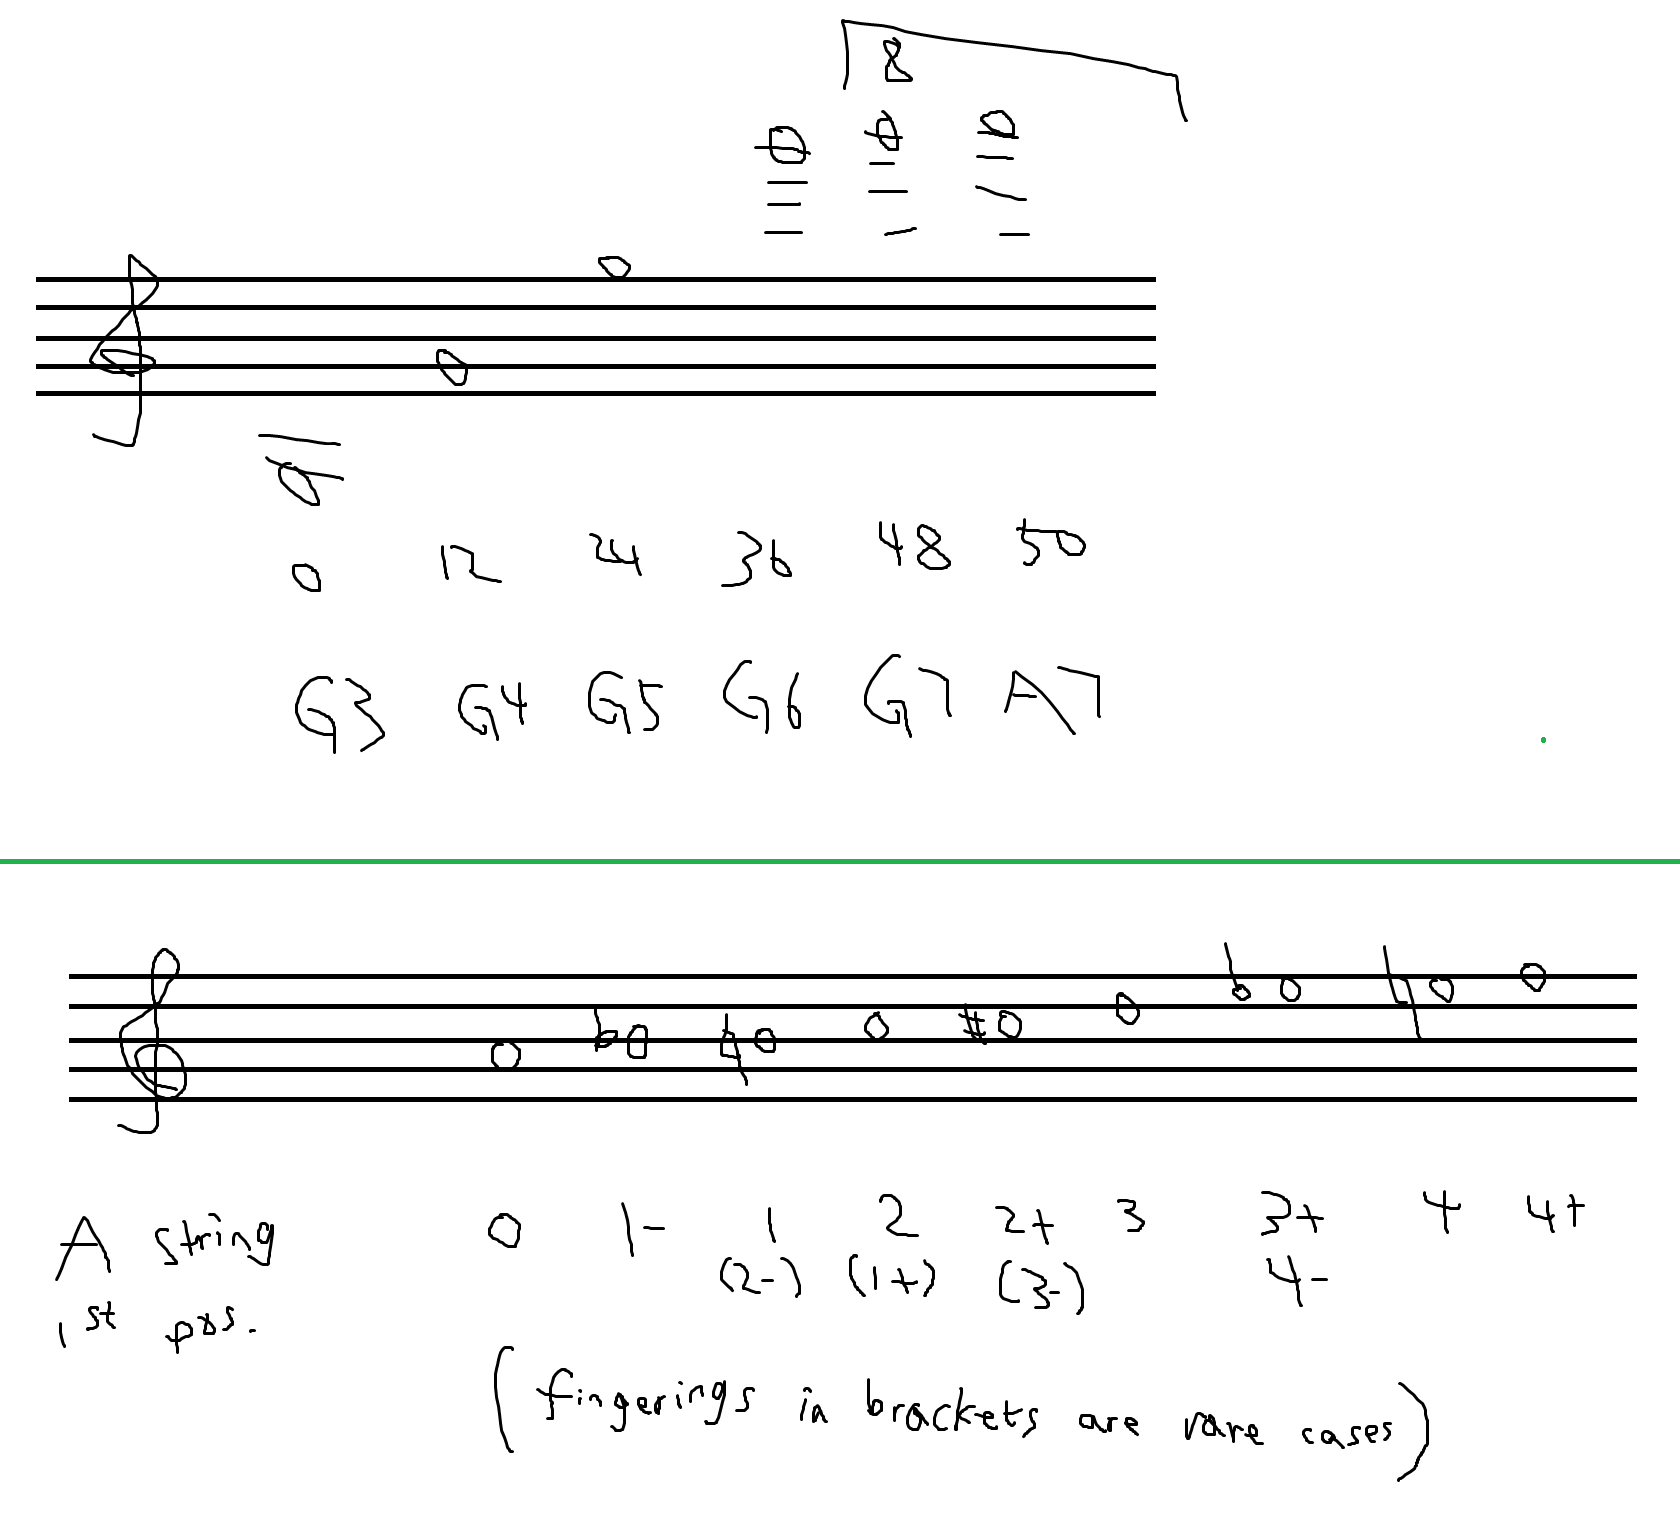 8
0 12 24 36 48 50
G3 G4 G5 G6 G7 A7
A string 0 1- 1 2 2+ 3 3+ 4 4+
1st pos. (2-) (1+) (3-) 4-
(fingerings in brackets are rare cases)